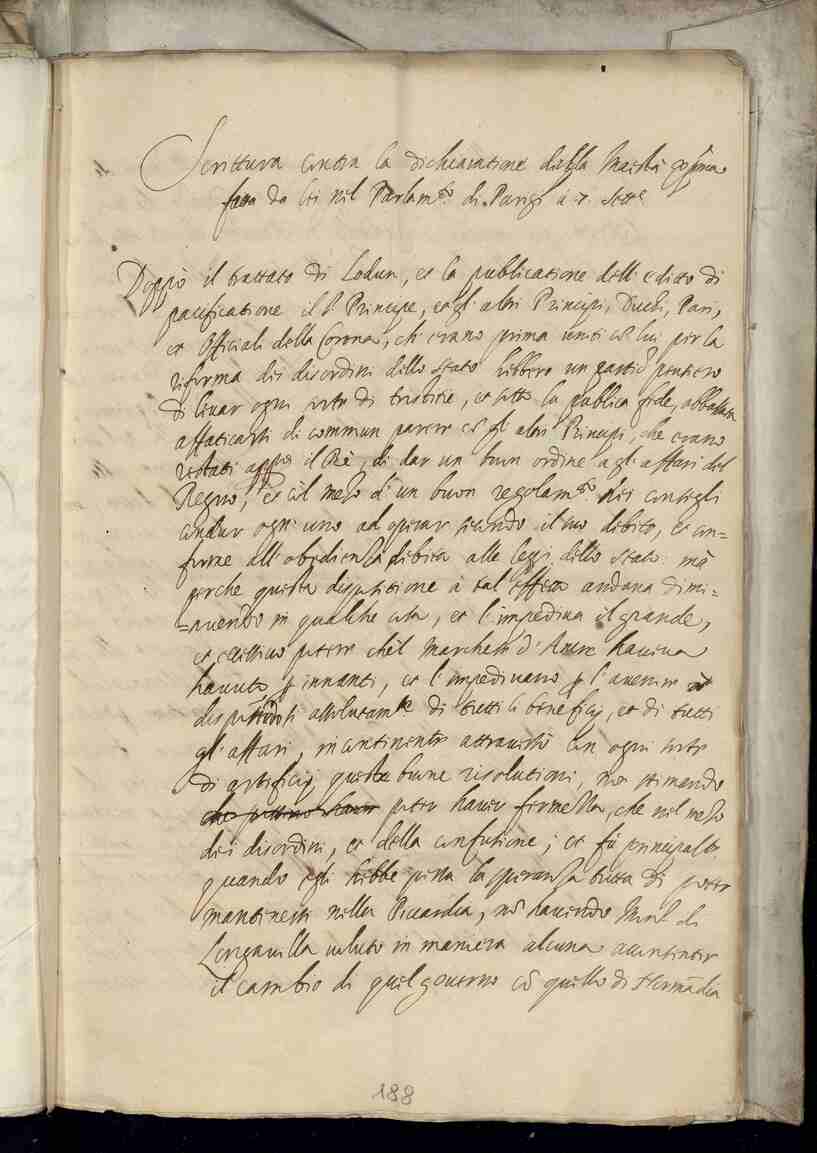 Scrittura contra la dichiaratione della Maestà
fatta da lei nel Parlam.to di Parigi à 7. Sett.e
Doppò il trattato di Lodun, et la publicatione dell'editto di
pacificatione il S.r Principe, et gl'altri Principi, Duchi, Pari,
et Officiali della Corona, ch'erano prima uniti cõ lui per la
riforma dei disordini dello stato hebbero un pensiero
di levar ogni sorte di tristitie, et sotto la publica fede,
affaticarsi di commun parere cõ gl'altri Principi, che erano
restati appò il Rè, di dar un buon ordine a gli affari del
Regno, et col mezo d'un buon regolam.to dei consigli
condur ogni uno ad operar secondo il suo debito, et con=
forme all'obedienza debita alle leggi dello stato. mà
perche questa dispositione à tal effetto andava dimi=
=nuendo in qualche cosa, et l'impediva il grande,
et eccessivo potere chè'l Marchese d'Ancre haveva
havuto p innanti, et l'impedivano p l'avenire
assolutam.te di tutti li beneficij, et di tutti
gl'affari, incontinente attraversò con ogni sorte
di artificij queste buone risolutioni, nõ stimando
poter haver fermezza, che nel mezo
dei disordini, et della confusione; et fù principal.te
quando egli hebbe persa la speranza tutta di poter
mantenersi nella Piccardia, nõ havendo Mons.r di
Longavilla voluto in maniera alcuna acconsentir
il cambio di quel governo cõ quello di Normãdia
188